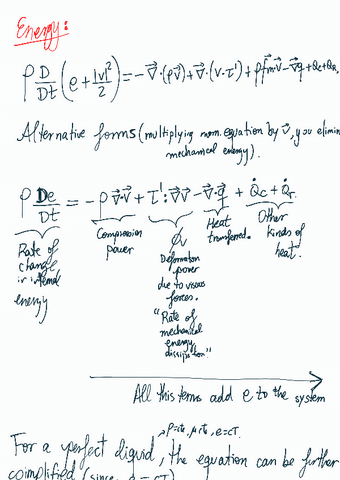 Energy:
ρ D/Dt (e + |v|²/2) = -∇⃗·(p v⃗) + ∇⃗·(v·τ') + ρ f⃗m·v⃗ - ∇⃗q + Qc + QR,
Alternative forms (multiplying mom. equation by v⃗, you elimin
mechanical energy).
ρ De/Dt = -p ∇⃗·v⃗ + τ':∇⃗v⃗ - ∇⃗·q⃗ + Q̇c + Q̇r
Rate of change in internal energy
Compression power
ϕv
Deformation power due to viscous forces.
"Rate of mechanical energy dissipation"
Heat transferred.
Other kinds of heat.
All this terms add e to the system
For a perfect liquid, the equation can be further